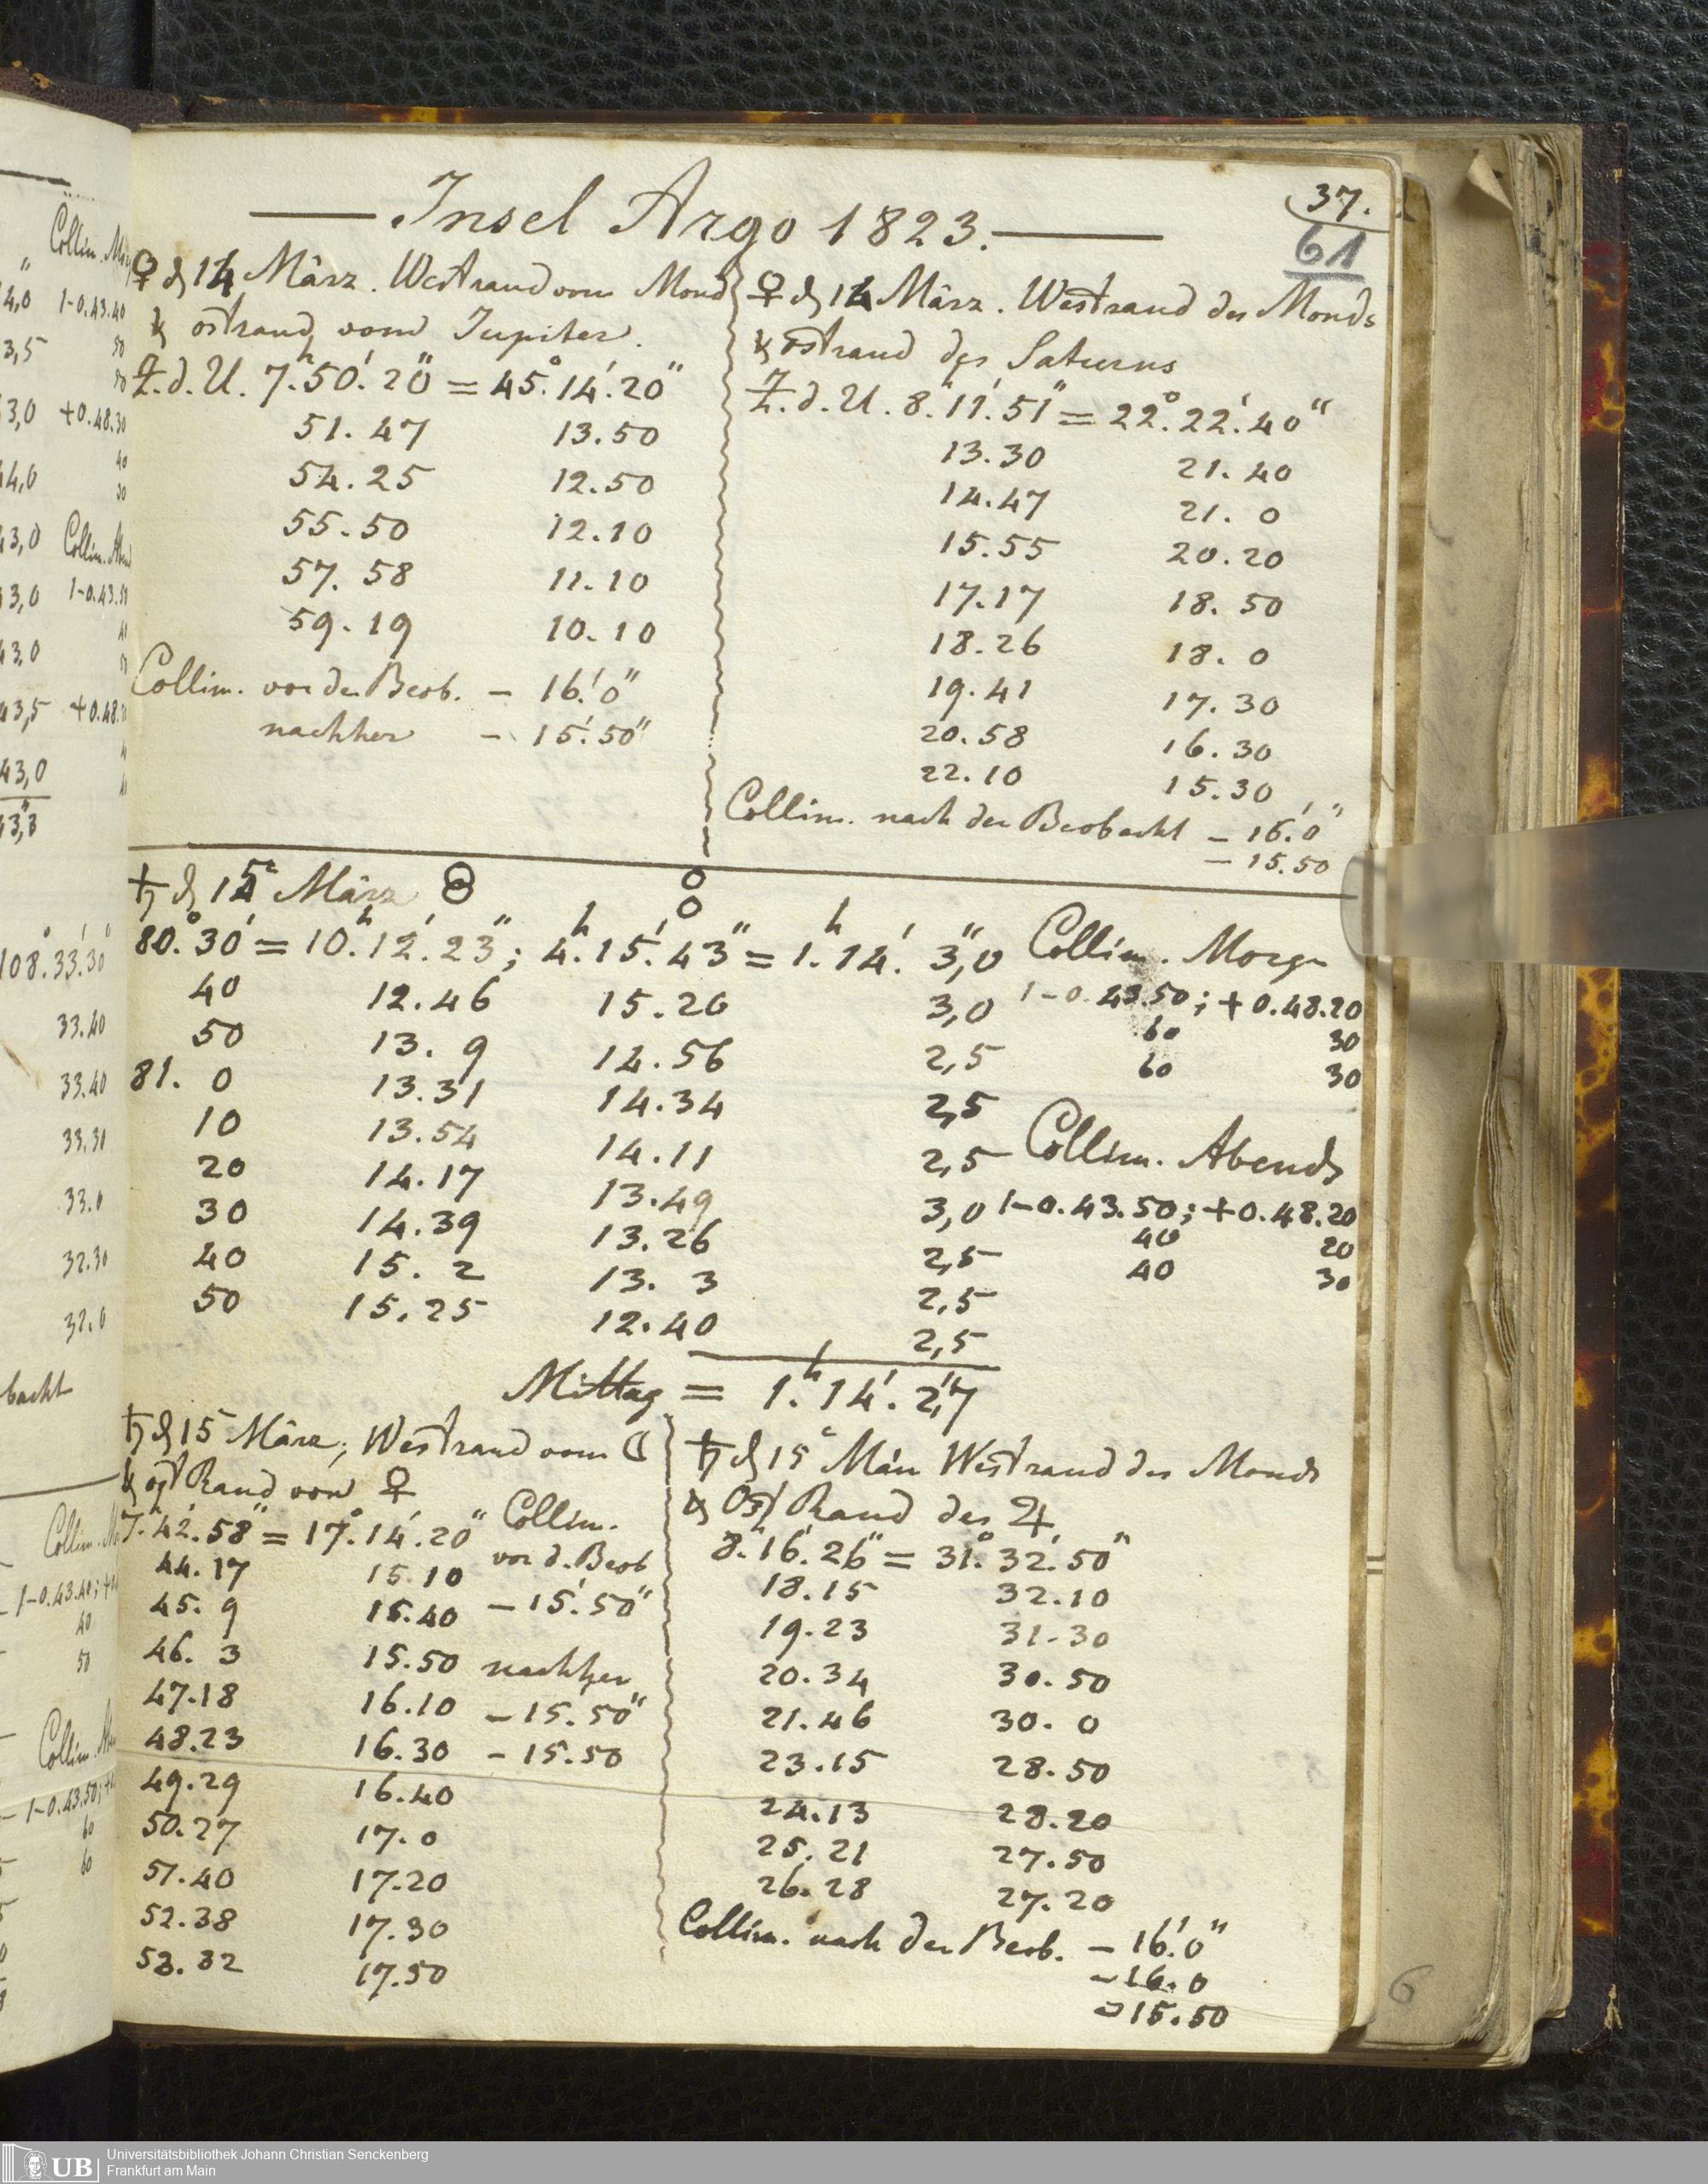 37.
61
Insel Argo 1823.
♀ d 14 März. Westrand vom Mond
& ostrand vom Jupiter.
Z. d. U. 7.h 50.' 20" = 45.° 14.' 20"
51. 47 13. 50
54. 25 12. 50
55. 50 12. 10
57. 58 11. 10
59. 19 10. 10
Collim. vor der Beob. – 16.' 0"
nachher – 15.' 50"
♀ d 14 März. Westrand des Monds
& ostrand des Saturns
Z. d. U. 8.h 11.' 51" = 22.° 22.' 40"
13. 30 21. 40
14. 47 21. 0
15. 55 20. 20
17. 17 18. 50
18. 26 18. 0
19. 41 17. 30
20. 58 16. 30
22. 10 15. 30
Collim. nach der Beobacht – 16.' 0"
– 15. 50
♄ d 15t März
80.° 30' = 10.h 12.' 23"; 4.h 15.' 43" = 1.h 14.' 3,"0
40 12. 46 15. 20 3,0
50 13. 9 14. 56 2,5
81. 0 13. 31 14. 34 2,5
10 13. 54 14. 11 2,5
20 14. 17 13. 49 3,0
30 14. 39 13. 26 2,5
40 15. 2 13. 3 2,5
50 15. 25 12. 40 2,5
Mittag = 1.h 14.' 2,"7
Collim. Morge
1–0. 43. 50; +0. 48. 20
60 30
60 30
Collim. Abends
1–0. 43. 50; +0. 48. 20
40 20
40 30
♄ d 15 März; Westrand vom ☾
& ost Rand von ♀
7.h 42.' 58" = 17.° 14.' 20"
44. 17 15. 10
45. 9 15. 40
46. 3 15. 50
47. 18 16. 10
48. 23 16. 30
49. 29 16. 40
50. 27 17. 0
51. 40 17. 20
52. 38 17. 30
53. 32 17. 50
Collim.
vor d. Beob
– 15.' 50"
nachher
– 15.' 50"
– 15. 50
♄ d 15t März Westrand des Monds
& Ost Rand des ♃
8.h 16.' 26" = 31.° 32.' 50"
18. 15 32. 10
19. 23 31. 30
20. 34 30. 50
21. 46 30. 0
23. 15 28. 50
24. 13 28. 20
25. 21 27. 50
26. 28 27. 20
Collim. nach der Beob. – 16.' 0"
– 16. 0
– 15. 50
6
108. 33. 30
33. 40
33. 40
33. 0
32. 30
32. 0
bacht
UB
Universitätsbibliothek Johann Christian Senckenberg
Frankfurt am Main